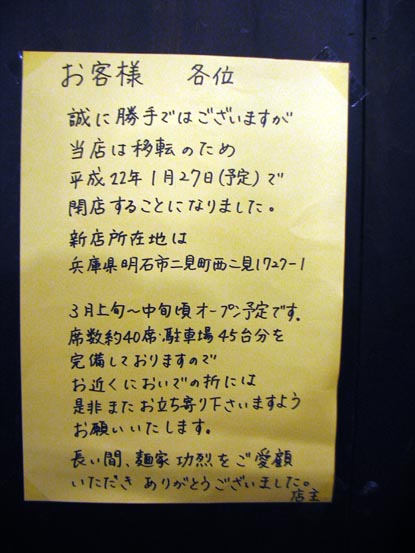 お客様 各位
誠に勝手ではございますが
当店は移転のため
平成22年1月27日(予定)で
閉店することになりました。
新店所在地は
兵庫県明石市二見町西二見1727-1
3月上旬〜中旬頃オープン予定です。
席数約40席・駐車場45台分を
完備しておりますので
お近くにおいでの折には
是非またお立ち寄り下さいますよう
お願いいたします。
長い間、麺家功烈をご愛顧
いただきありがとうございました。
店主